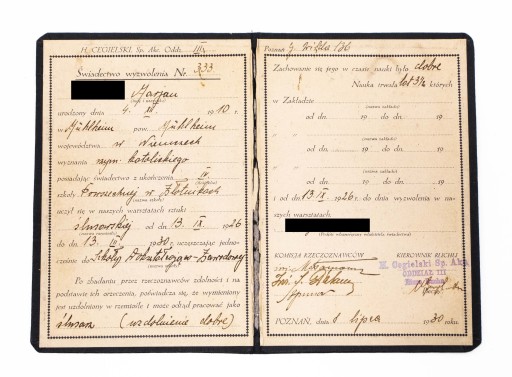 H. CEGIELSKI Sp. Akc. Oddz. III
Świadectwo wyzwolenia Nr. 333
Marjan
urodzony dnia 4. XII. 1910 r.
w Mühlheim pow. Mühlheim
województwo w Niemczech
wyznania rzym. katolickiego
posiadając świadectwo z ukończenia IV
szkoły Powszechnej w Złotnikach
uczył się w naszych warsztatach sztuki
ślusarskiej od dn. 13. IX. 1926
do dn. 13. 1930. uczęszczając jedno-
cześnie do Szkoły Dokształcająco-Zawodowej
Po zbadaniu przez rzeczoznawców zdolności i na
podstawie ich orzeczenia, poświadcza się, że wymieniony
jest uzdolniony w rzemiośle i może odtąd pracować jako
ślusarz (uzdolnienie dobre)
Poznań
Zachowanie się jego w czasie nauki było dobre
Nauka trwała lat 3½ z których
w Zakładzie
(nazwa zakładu)
od dn. 19 do dn. 19
(nazwa zakładu)
od dn. 19 do dn. 19
(nazwa zakładu)
od dn. 19 do dn. 19
i od dn. 13 IX 1926 do dnia wyzwolenia w na-
szych warsztatach.
(Podpis własnoręczny właściciela świadectwa)
KOMISJA RZECZOZNAWCÓW KIEROWNIK RUCHU
H. Cegielski Sp. Akc.
ODDZIAŁ III
POZNAŃ, dnia 1 lipca 1930 roku.